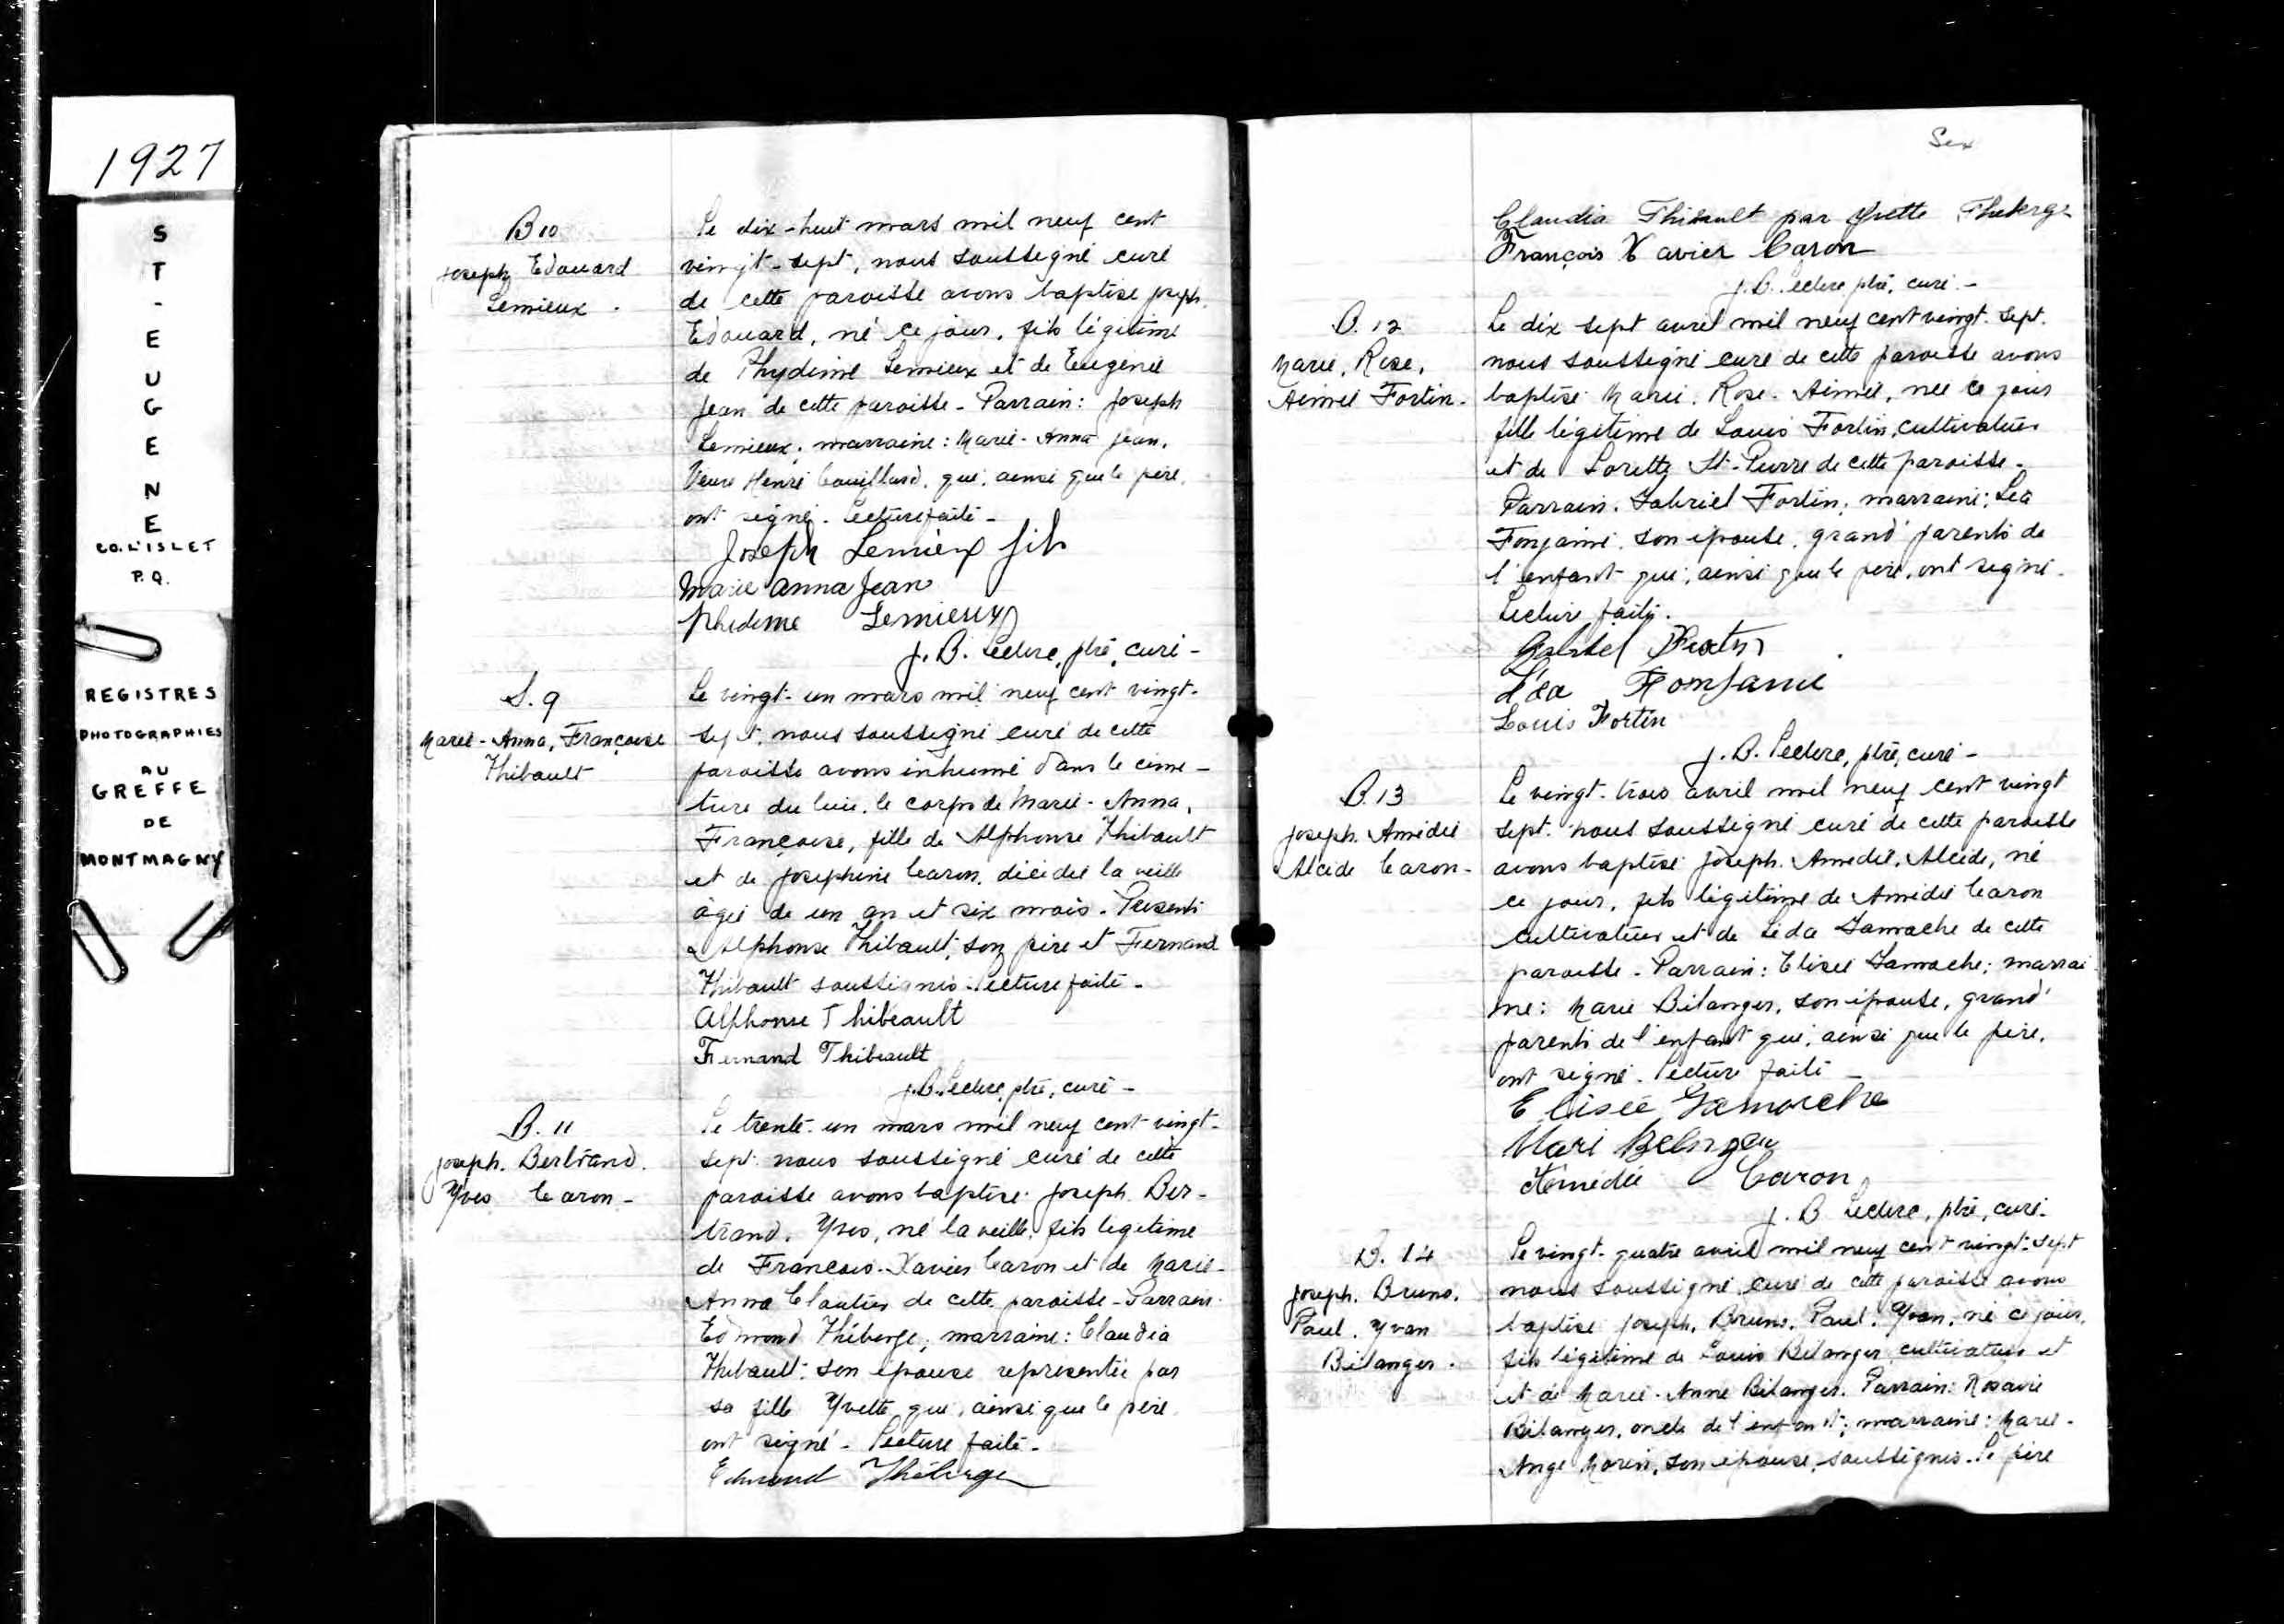 1927
ST-EUGENE
CO. L'ISLET
P.Q.
REGISTRES
PHOTOGRAPHIES
AU
GREFFE
DE
MONTMAGNY
B 10
Joseph Edouard
Lemieux.
Le dix-huit mars mil neuf cent
vingt-sept, nous soussigné curé
de cette paroisse avons baptisé Joseph.
Edouard, né ce jour, fils légitime
de Phydime Lemieux et de Eugenie
Jean de cette paroisse - Parrain: Joseph
Lemieux; marraine: Marie-Anna Jean,
Veuve Henri Couillard, qui, ainsi que le père,
ont signé. Lecture faite -
Joseph Lemieux fils
Marie Anna Jean
Phedime Lemieux
J. B. Leclerc, ptre, curé -
S. 9
Marie-Anna, Françoise
Thibault
Le vingt-un mars mil neuf cent vingt-
sept, nous soussigné curé de cette
paroisse avons inhumé dans le cime-
tière du lieu, le corps de Marie-Anna,
Françoise, fille de Alphonse Thibault
et de Josephine Caron, décédée la veille
âgée de un an et six mois. Présents
Alphonse Thibault, son père et Fernand
Thibault soussignés. Lecture faite -
Alphonse Thibeault
Fernand Thibeault
J. B. Leclerc, ptre, curé -
B. 11
Joseph. Bertrand.
Yves Caron -
Le trente-un mars mil neuf cent vingt-
sept nous soussigné curé de cette
paroisse avons baptisé Joseph Ber-
trand. Yves, né la veille, fils légitime
de François-Xavier Caron et de Marie-
Anna Cloutier de cette paroisse - Parrain
Edmond Théberge; marraine: Claudia
Thibault, son épouse représentée par
sa fille Yvette qui, ainsi que le père
ont signé - Lecture faite -
Edmond Théberge
Six
Claudia Thibault par Yvette Theberge
François Xavier Caron
J. B. Leclerc ptre, curé -
B. 12
Marie, Rose,
Aimée Fortin -
Le dix sept avril mil neuf cent vingt-sept.
nous soussigné curé de cette paroisse avons
baptisé Marie. Rose. Aimée, née ce jour
fille légitime de Louis Fortin, cultivateur
et de Lorette St-Pierre de cette paroisse -
Parrain. Gabriel Fortin; marraine: Léa
Fonjamie, son épouse, grand'parents de
l'enfant qui, ainsi que le père, ont signé -
Lecture faite.
Gabriel Fortin
Léa Fonjamie
Louis Fortin
J. B. Leclerc, ptre, curé -
B. 13
Joseph. Amédée
Alcide Caron -
Le vingt-trois avril mil neuf cent vingt
sept. nous soussigné curé de cette paroisse
avons baptisé Joseph. Amédée. Alcide, né
ce jour, fils légitime de Amédée Caron
cultivateur et de Léda Gamache de cette
paroisse - Parrain: Elisée Gamache; marrai
ne: Marie Bélanger, son épouse, grand'
parents de l'enfant qui, ainsi que le père,
ont signé - Lecture faite -
Elisée Gamache
Mari Belanger
Amédée Caron
J. B Leclerc, ptre, curé -
B. 14
Joseph. Bruno.
Paul. Yvan
Bélanger.
Le vingt-quatre avril mil neuf cent vingt-sept
nous soussigné curé de cette paroisse avons
baptisé Joseph, Bruno, Paul, Yvan, né ce jour,
fils légitime de Louis Bélanger cultivateur et
et de Marie-Anne Bélanger. Parrain: Rosaire
Bélanger, oncle de l'enfant; marraine: Marie-
Ange Morin, son épouse, soussignés. Le père